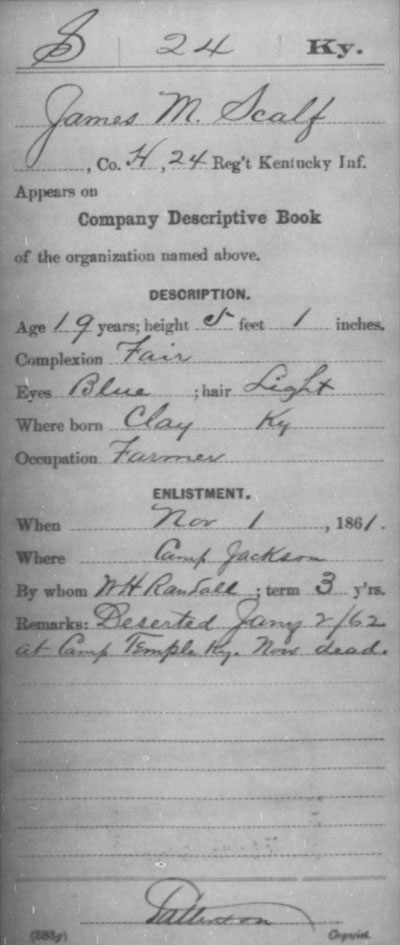 S | 24 | Ky.
James M. Scalf
, Co. H, 24 Reg't Kentucky Inf.
Appears on
Company Descriptive Book
of the organization named above.
DESCRIPTION.
Age 19 years; height 5 feet 1 inches.
Complexion Fair
Eyes Blue ; hair Light
Where born Clay Ky
Occupation Farmer
ENLISTMENT.
When Nov 1, 1861.
Where Camp Jackson
By whom W H Randall; term 3 y'rs.
Remarks: Deserted Jany 2/62
at Camp Temple Ky. Now dead.
Patterson
(383g) Copyist.